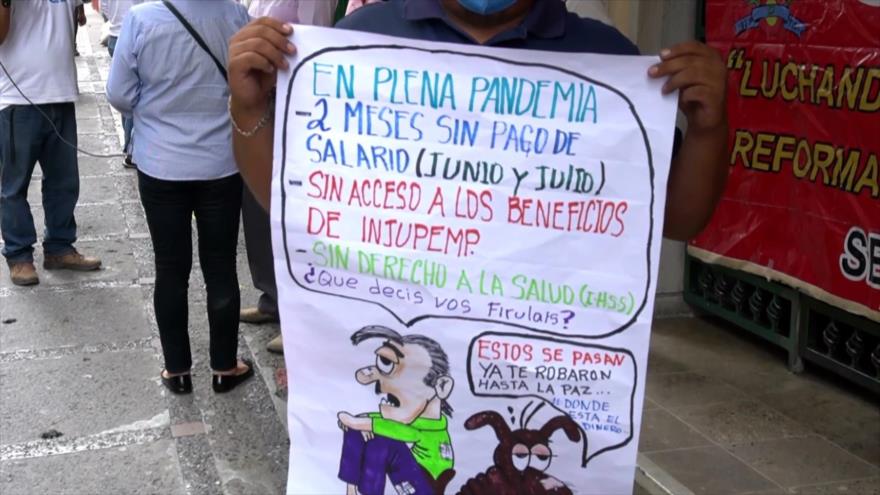 EN PLENA PANDEMIA
- 2 MESES SIN PAGO DE
SALARIO (JUNIO Y JULIO)
- SIN ACCESO A LOS BENEFICIOS
DE INJUPEMP.
- SIN DERECHO A LA SALUD (IHSS)
¿QUE DECIS VOS FIRULAIS?
ESTOS SE PASAN
YA TE ROBARON
HASTA LA PAZ...
DONDE
ESTA EL
DINERO...
"LUCHAND
REFORMA
SE